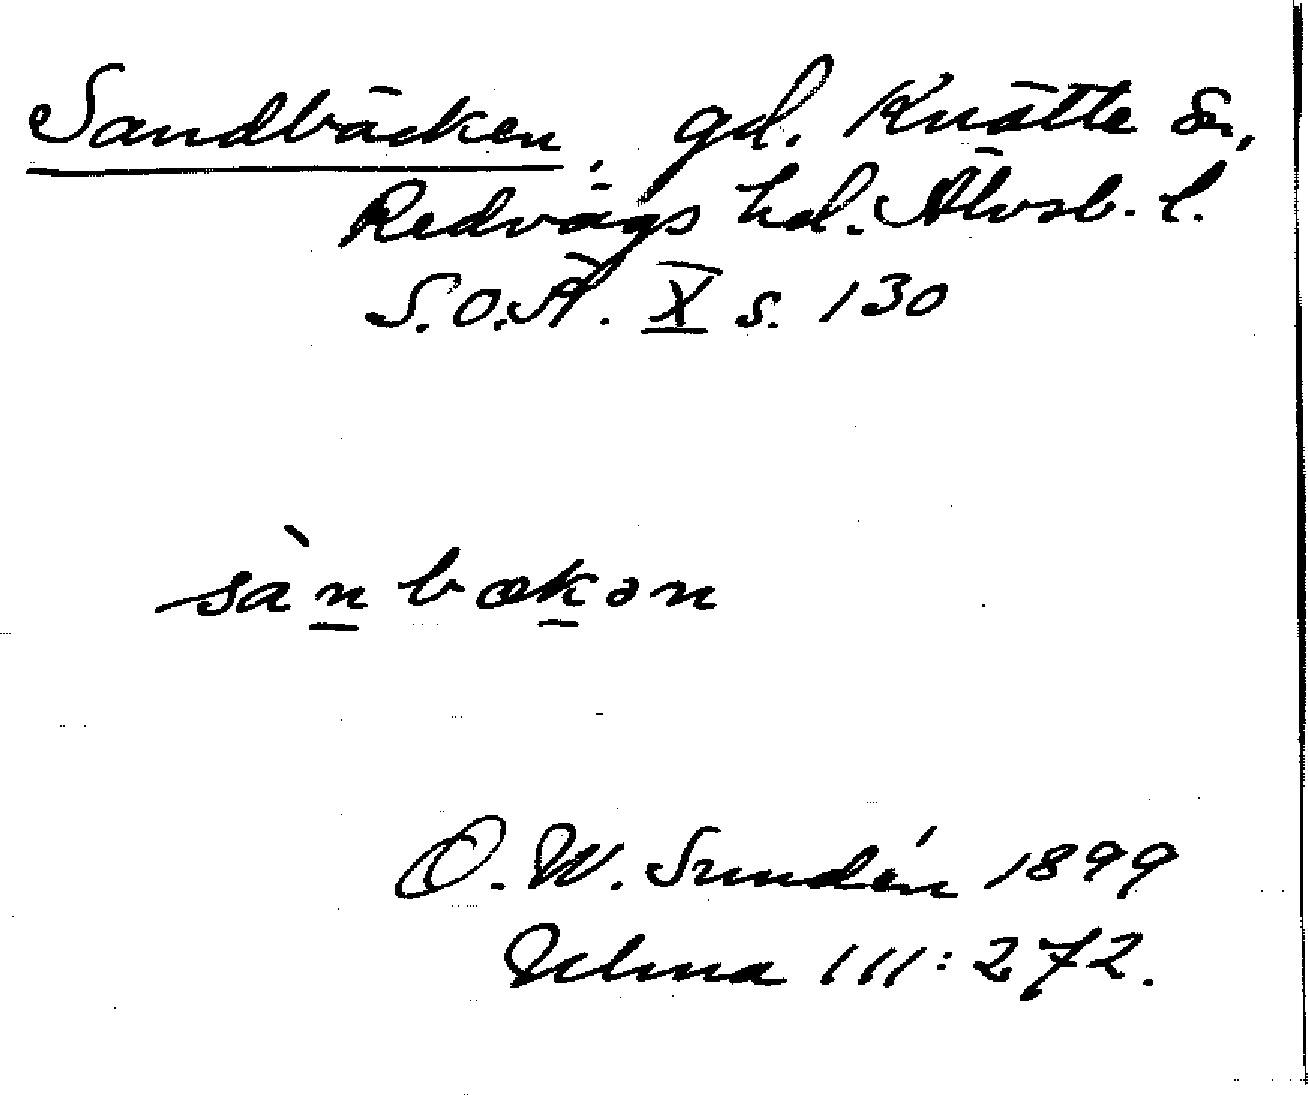 Sandbäcken, gd. Knätte sn,
Redvägs hd. Älvsb. l.
S.O.Ä. X s. 130
sànbækən
O. W. Sundén 1899
Ulma 111:272.